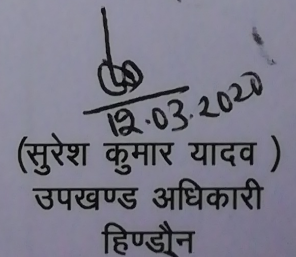 12.03.2020
(सुरेश कुमार यादव )
उपखण्ड अधिकारी
हिण्डौन